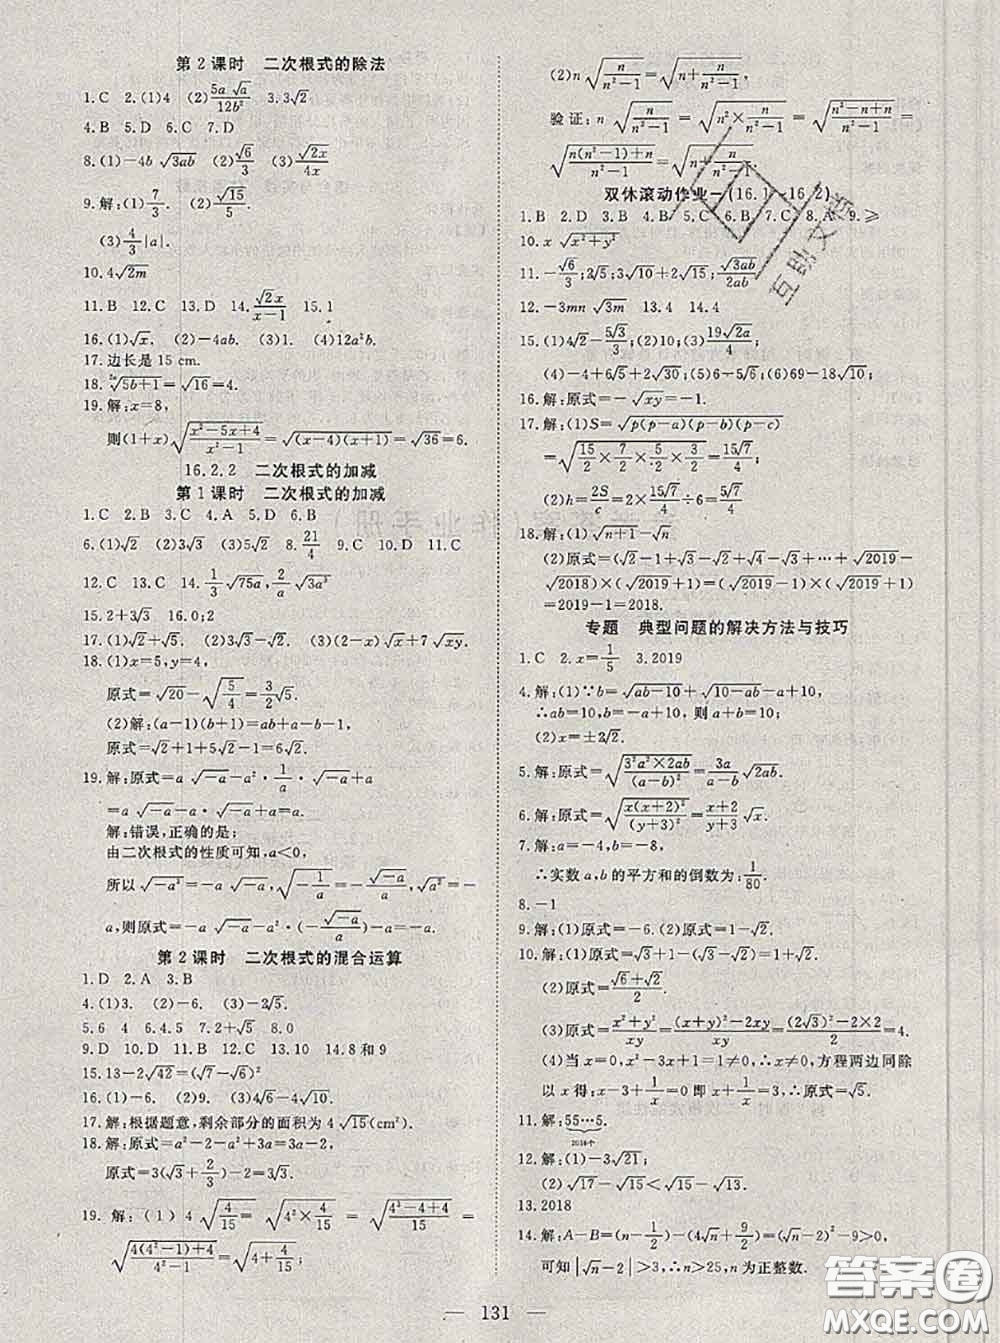 第2课时 二次根式的除法
1.C 2.(1)4 (2)5a√a/12b² 3.3√2
4.B 5.D 6.C 7.D
8.(1)-4b√3ab (2)√6/3 (3)√2x/4
9.解:(1)7/3. (2)√15/5.
(3)4/3|a|.
10.4√2m
11.B 12.C 13.D 14.√2x/x-1 15.1
16.(1)√x. (2)-4ab. (3)4. (4)12a²b.
17.边长是15 cm.
18.√5b+1=√16=4.
19.解:x=8,
则(1+x)√(x²-5x+4)/(x²-1)=√(x-4)(x+1)=√36=6.
16.2.2 二次根式的加减
第1课时 二次根式的加减
1.C 2.C 3.D 4.A 5.D 6.B
6.(1)√2 (2)3√3 (3)5√2 8.21/4 9.C 10.C 11.C
12.C 13.C 14.1/a√75a,2/a√3a³
15.2+3√3 16.0
17.(1)√2+√5. (2)3√3-√2. (3)(2-x)√x+7√xy.
18.(1)x=5,y=4,
原式=√20-√5/4=3/2√5.
(2)解:(a-1)(b+1)=ab+a-b-1,
原式=√2+1+5√2-1=6√2.
19.解:原式=a√-a-a²·1/a·√-a+a
=a√-a-a·√-a+a=a.
解:错误,正确的是;
由二次根式的性质可知,a<0,
所以√-a³=-a√-a,√-1/a=-√-a/a,√a²=-
a,则原式=-a√-a-a²·(-√-a/a)-a=-a.
第2课时 二次根式的混合运算
1.D 2.A 3.B
4.(1)3. (2)-6. (3)-2√5.
5.6 4 6.4.5 7.2+√5 8.0
9.D 10.D 11.B 12.C 13.10 14.8和9
15.13-2√42=(√7-√6)²
16.(1)-6. (2)9. (3)3+√2.
17.解:根据题意,剩余部分的面积为4√15(cm²).
18.解:原式=a²-2-a²+3a=3a-2,
原式=3(√3+2/3)-2=3√3.
19.解:(1)4√4/15=√4²×4/15=√(4³-4+4)/15=
√(4(4²-1)+4)/(4²-1)=√4+4/15.
(2)n√n/(n²-1)=√n+n/(n²-1),
验证:n√n/(n²-1)=√n²×n/(n²-1)=√(n³-n+n)/(n²-1)=
√(n(n²-1)+n)/(n²-1)=√n+n/(n²-1).
双休滚动作业一(16.1~16.2)
1.B 2.D 3.D 4.B 5.C 6.B 7.C 8.A 9.≥
10.x√x²+y²
11.-√6/3;2√5;10√3+2√15;√3ab/2ab
12.-3mn√3m 13.4 14.4
15.(1)4√2-5√3/3;(2)10;(3)19√2a/4
(4)-4+6√5+2√30;(5)6-5√6;(6)69-18√10.
16.解:原式=-√xy=-1.
17.解:(1)S=√p(p-a)(p-b)(p-c)
=√15/2×7/2×5/2×3/2=15√7/4;
(2)h=2S/c=2×15√7/4÷6=5√7/4
18.解:(1)√n+1-√n
(2)原式=(√2-1+√3-√2+√4-√3+…+√2019-
√2018)×(√2019+1)=(√2019-1)×(√2019+1)=
2019-1=2018.
专题 典型问题的解决方法与技巧
1.C 2.x=1/5 3.2019
4.解:(1)∵b=√ab-10+√10-ab-a+10,
∴ab=10,b=-a+10,则a+b=10;
(2)x=±2√2.
5.解:原式=√3²a²×2ab/(a-b)²=3a/a-b√2ab.
6.解:原式=√x(x+2)²/(y+3)²=x+2/y+3√x.
7.解:a=-4,b=-8,
∴实数a,b的平方和的倒数为:1/80.
8.-1
9.解:(1)原式=-6.(2)原式=1-√2.
10.解:(1)原式=√3+1-(√3-1)=2.
(2)原式=√6+√2/2.
(3)原式=x²+y²/xy=(x+y)²-2xy/xy=(2√3)²-2×2/2=4.
(4)当x=0,x²-3x+1=1≠0,∴x≠0,方程两边同除
以x得:x-3+1/x=0即x+1/x=3,∴原式=√5.
11.解:55…5.
2018个
12.解:(1)-3√21;
(2)√17-√15<√15-√13.
13.2018
14.解:A-B=(n-1/2)-(4√n-9/2)=(√n-2)²-9>0;
可知|√n-2|>3,∴n>25,n为正整数.
— 131 —
互助文档
答案圈
MXQE.COM